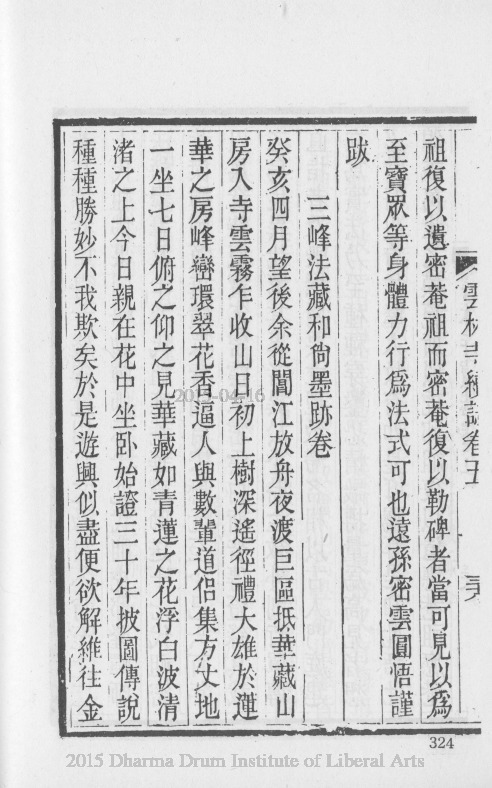 雲林寺續誌卷五
祖復以遺密菴祖而密菴復以勒碑者當可見以爲
至寶眾等身體力行爲法式可也遠孫密雲圓悟謹
跋
三峰法藏和尙墨跡卷
癸亥四月望後余從閶江放舟夜渡巨區抵華藏山
房入寺雲霧乍收山日初上樹深遙徑禮大雄於蓮
華之房峰巒環翠花香逼人與數輩道侶集方丈地
一坐七日俯之仰之見華藏如青蓮之花浮白波清
渚之上今日親在花中坐卧始證三十年披圖傳說
種種勝妙不我欺矣於是遊興似盡便欲解維往金
324
2015 Dharma Drum Institute of Liberal Arts